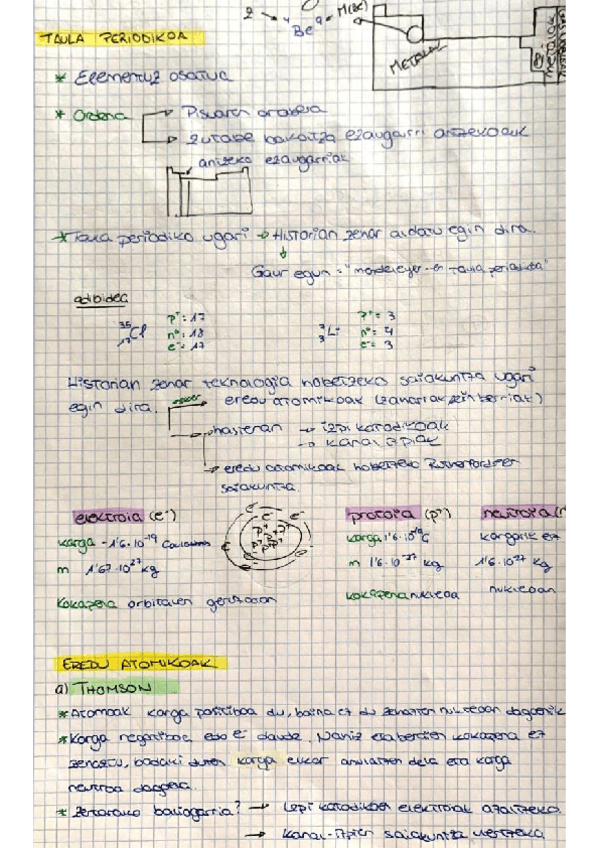 2 → ⁴Be⁹ → M(Be)
TAULA PERIODIKOA
METALAK
* Elementuz osatua
* Ordena → Pisuaren arabera
→ Zutabe bakoitza ezaugarri antzekoak
antzeko ezaugarriak
* Taula periodiko ugari → Historian zehar aldatu egin dira.
Gaur egun = " taula periodikoa"
adibidea
³⁵₁₇Cl p⁺: 17 n⁰: 18 e⁻: 17
⁷₃Li p⁺: 3 n⁰: 4 e⁻: 3
Historian zehar teknologia hobetzeko saiakuntza ugari
egin dira. → eredu atomikoak
→ hasieran → izpi katodikoak
→ kanal izpiak
→ eredu atomikoak hobetzeko Rutherforden
saiakuntza.
elektroia (e⁻) protoia (p⁺) neutroia (n
karga -1'6·10⁻¹⁹ Coulomb karga 1'6·10⁻¹⁹C kargarik ez
m 1'67·10²⁷kg m 1'6·10⁻²⁷ kg 1'6·10²⁷ kg
kokapena orbitalen geruzan kokapena nukleoa nukleoan
EREDU ATOMIKOAK
a) THOMSON
* Atomoak karga positiboa du, baina ez du zehazten nukleoan dagoenik
* Karga negatiboa edo e⁻ daude. Nahiz eta beraien kokapena ez
zehaztu, badaki duten karga elkar anulatzen dela eta karga
neutroa dagoela.
* Zertarako baliogarria? → Izpi katodikoen elektroiak azaltzeko.
→ Kanal-izpien saiakuntza ulertzeko